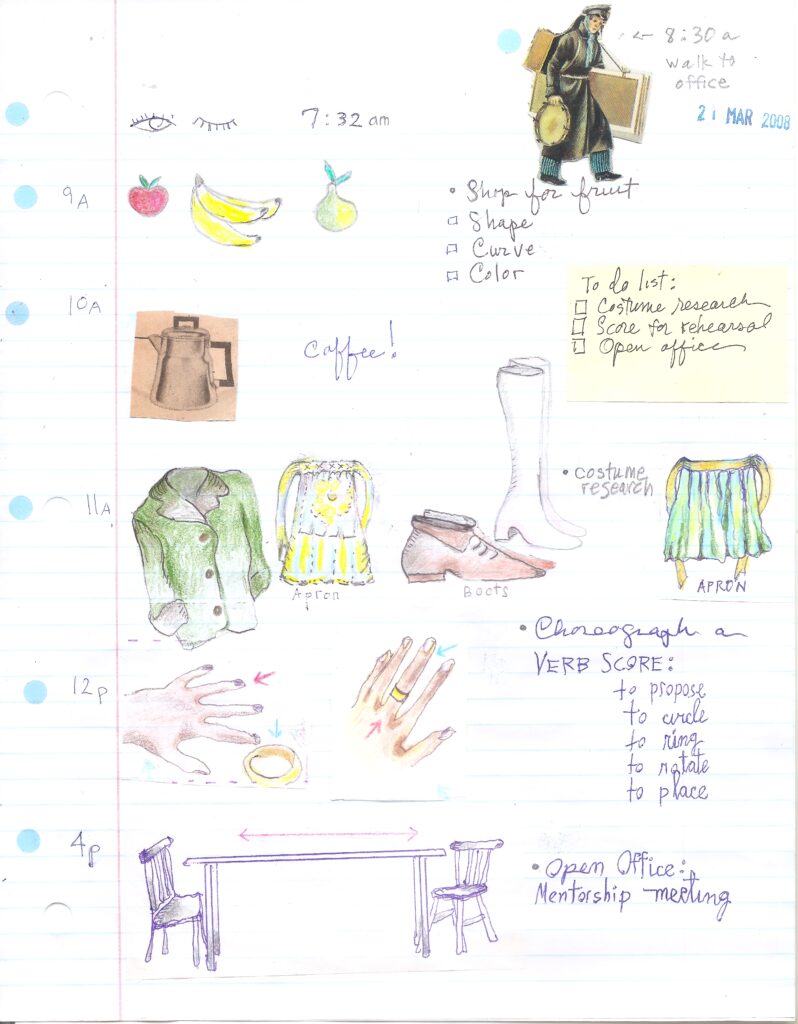 ← 8:30a
walk to
office
21 MAR 2008
7:32 am
9A
• Shop for fruit
□ Shape
□ Curve
□ Color
To do list:
□ Costume research
□ Score for rehearsal
□ Open office
10A
Coffee!
11A
• costume
research
Apron
Boots
APRON
12p
• Choreograph a
VERB SCORE:
to propose
to circle
to ring
to rotate
to place
4p
• Open Office:
Mentorship meeting